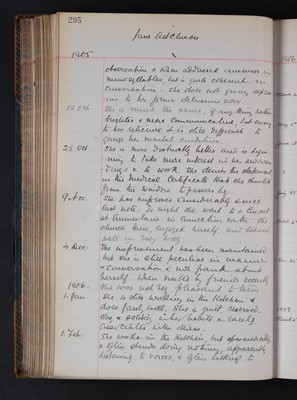 295
Jane Aitchison
1905.
observation & when addressed answers in
monosyllables, but is quite coherent in
conversation. She does not give expres
ion to her former delusions now.
18 Oct.
She is much the same, if anything rather
brighter & more communicative, but owing
to her reticence it is often difficult to
gauge her mental condition.
25 Oct
She is now distinctly better and is begin
ning to take more interest in her surroun
dings & to work. She denies the statement
in the medical certificate that she shouted
from the window to passers by.
9 Nov.
She has improved considerably since
last note. Last night she went to a
at in connection with the
church, enjoyed herself, and behaved
well in every way.
4 Dec.
The improvement has been maintained
but she is still peculiar in manner
& conversation & not frank about
herself. When visited by friends recently
she was not very pleasant to them
1906.
1. Jan.
She is still working in the Kitchen &
does fairly well. She is quiet, reserved,
shy & solitary in her habits & rarely
associates with others.
1. Feb.
She works in the Kitchen but spasmodically,
& often stands doing nothing, apparently
listening to voices, & often talking to
1906
1907